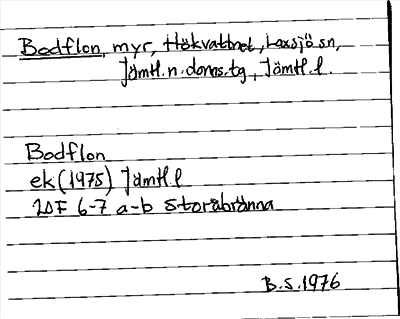 Bodflon, myr, Hökvattnet, Laxsjö sn,
Jämtl. n. doms. tg, Jämtl. l.
Bodflon
ek (1975) Jämtl. l
20F 6-7 a-b Storåbränna
B.S. 1976